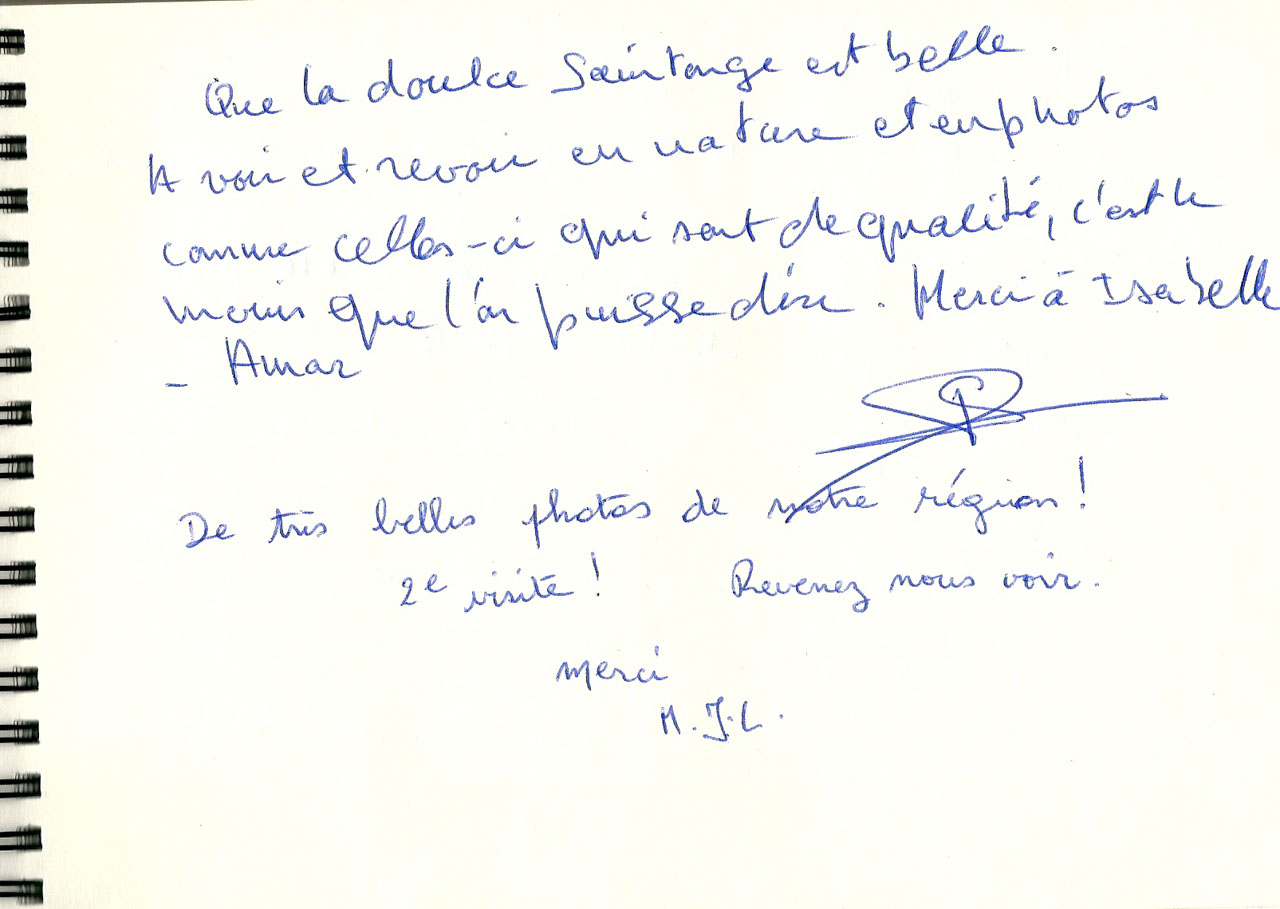 Que la doulce Saintonge est belle.
A voir et revoir en nature et en photos
comme celles-ci qui sont de qualité, c'est le
moins que l'on puisse dire. Merci à Isabelle
- Amar
De très belles photos de notre région !
2e visite ! Revenez nous voir.
merci
M.J.L.